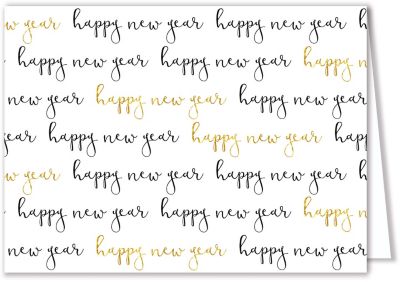 new year happy new year happy new year
happy new year happy new year happy n
new year happy new year happy new year
year happy new year happy new year happy
new year happy new year happy new year
happy new year happy new year happy n
new year happy new year happy new year